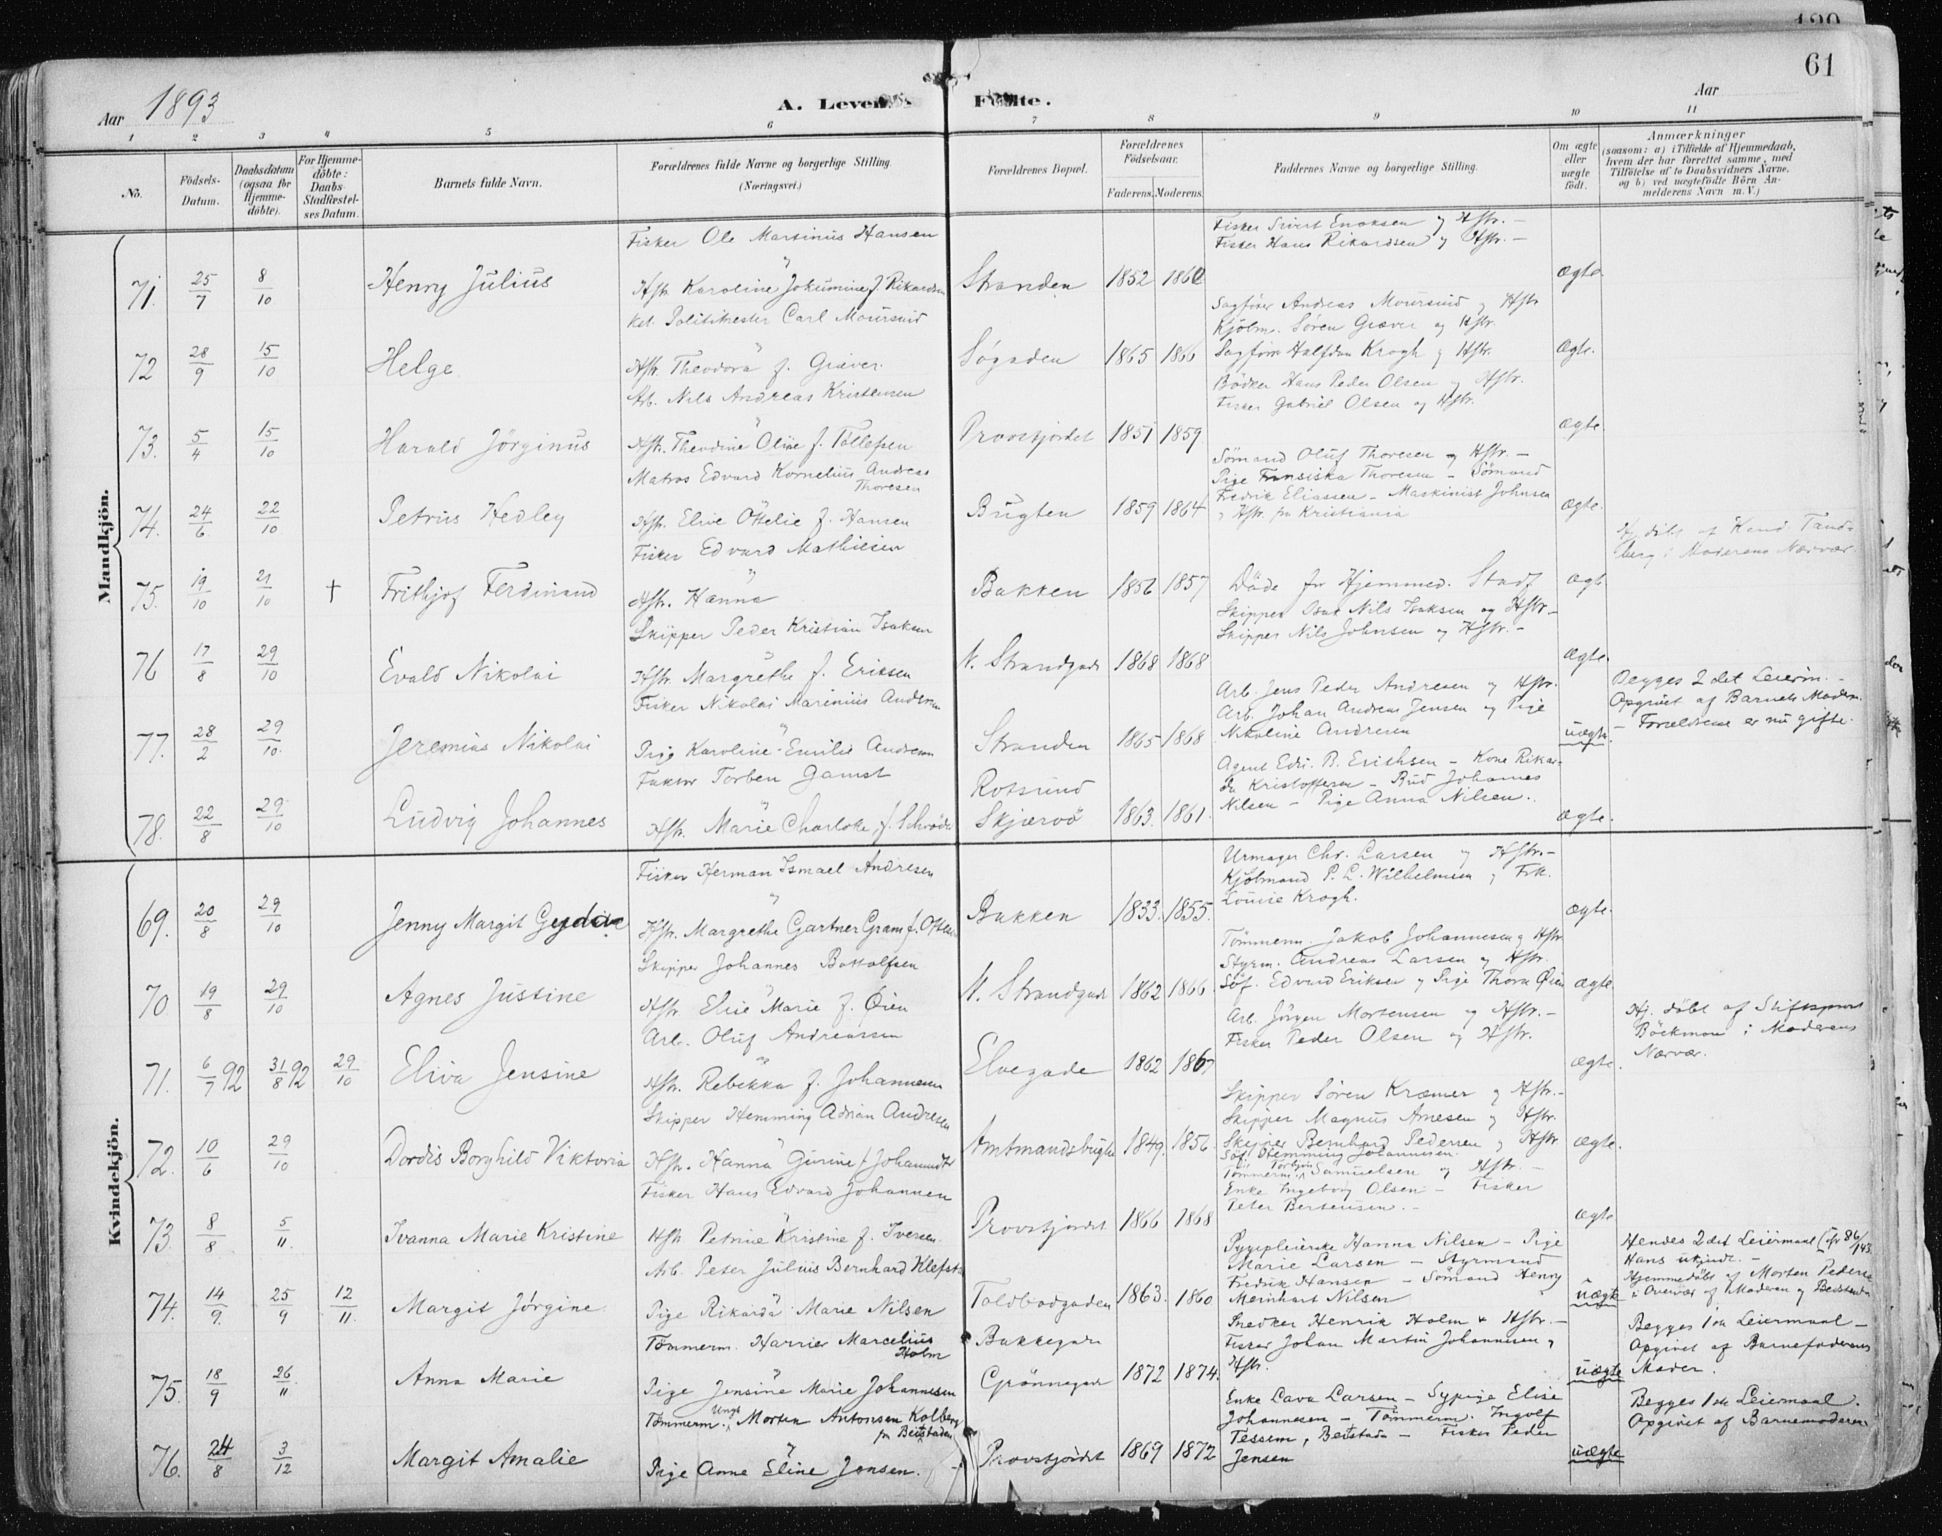 61
Aar 1893
A. Levende Fødte.
Aar
1 2 3 4 5 6 7 8 9 10 11
No.
Fødsels-Datum.
Daabsdatum (ogsaa for Hjemmedöbte).
For Hjemmedöbte: Daabs Stadfæstelses Datum.
Barnets fulde Navn.
Forældrenes fulde Navne og borgerlige Stilling. (Næringsvei.)
Forældrenes Bopæl.
Forældrenes Födselsaar.
Faderens. Moderens.
Faddernes Navne og borgerlige Stilling.
Om ægte eller uægte födt.
Anmærkninger
(saasom: a) i Tilfælde af Hjemmedaab, hvem der har forrettet samme, med Tilföielse af to Daabsvidners Navne, og b) ved uægtefödte Börn Anmelderens Navn m. V.)
Mandkjön.
Fisker Ole Martinus Hansen
Fisker Sivert Enoksen og Hstr. -
Fisker Hans Rikardsen og Hstr. -
71. 25/7 8/10 Henry Julius
Hstr. Karoline Jokumine f. Rikardsen
Stranden 1852 1860 ægte.
Kst. Politimester Carl Moursund
Sagförer Andreas Moursund og Hstr
Kjöbm. Sören Græver og Hstr.
72 28/9 15/10 Helge
Hstr. Theodora f. Græver.
Søgaden 1865 1866
Sagförer Halfdan Krogh og Hstr.
ægte.
Arb. Nils Andreas Kristensen
Bödker Hans Peder Olsen og Hstr.
Fisker Gabriel Olsen og Hstr.
73. 5/4 15/10 Harald Jörginus
Hstr. Theodine Oline f. Tollefsen
Provstjordet 1851 1859 ægte.
Matros Edvard Kornelius Andreas Thoresen
Sömand Oluf Thoresen og Hstr. -
Pige Fransiska Thoresen - Sömand
Fredrik Eliassen - Maskinist Johnsen
og Hstr. fra Kristiania
74. 24/6 22/10 Petrus Hedley
Hstr. Elive Ottelie f. Hansen
Bugten 1859 1864 ægte.
Fisker Edvard Mathiesen
Hj. döbt af Kand. Tandberg i Moderens Nærvær.
75. 19/10 21/10 † Frithjof Ferdinand
Hstr. Hanna
Bakken 1856 1857
Döde før Hjemmed. Stadf
ægte
Skipper Peder Kristian Isaksen
Skipper Nils Isaksen og Hstr. -
Skipper Nils Johnsen og Hstr. -
76 17/8 29/10 Evald Nikolai
Hstr. Margrethe f. Ericsen
N. Strandgade 1868 1868 ægte.
Fisker Nikolai Marinius Andersen
Arb. Jens Peder Andresen og Hstr.
Arb. Johan Andreas Jensen og Pige
Nikoline Andresen
77. 28/2 29/10. Jeremias Nikolai
Pige Karoline Emilie Andresen
Stranden 1865 1868 uægte
Begges 2det Leierm. -
Opgivet af Barnets Moder.
- Forældrene er nu gifte.
Faktor Torben Gamst
Rotsund
Agent Edv. B. Erichsen - Kone Rikarda Kristoffersen - Bud Johannes
Nilsen - Pige Anna Nilsen.
78. 22/8 29/10 Ludvig Johannes
Hstr. Marie Charlotte, f. Schrøder
Skjærvö 1863. 1861. ægte.
Kvindekjön.
Fisker Herman Ismael Andresen
Urmager Chr. Larsen og Hstr. -
Kjöbmand P. L. Wilhelmsen og Frk.
Louise Krogh.
69. 20/8 29/10 Jenny Margit Gyda
Hstr. Margrethe Gartner Gram f. Olsen
Bakken 1833. 1855. ægte.
Skipper Johannes Bottolfsen
Tömmerm. Jakob Johannesen og Hstr
Styrm. Andreas Larsen og Hstr.
Söf. Edvard Eriksen og Pige Thora Øien
70 19/8 29/10 Agnes Justine
Hstr. Elise Marie f. Øien
N. Strandgade 1862 1866 ægte
Arb. Oluf Andreassen
Arb. Jörgen Mortensen og Hstr. -
Fisker Peder Olsen og Hstr.
71. 6/7 92 31/8 92 29/10 Eliva Jensine
Hstr. Rebekka f. Johannesen
Elvegade 1862 1867 ægte.
Hj. döbt af Stiftsprovst
Böckman i Moderens
Nærvær.
Skipper Hemming Adrian Andresen
Skipper Sören Kræmer og Hstr. -
Skipper Magnus Arnesen og Hstr.
Skipper Bernhard Pedersen og Hstr
Söf. Hemming Johannesen.
72. 10/6 29/10 Dordis Borghild Viktoria
Hstr. Hanna Gurine f. Johannesen
Amtmandsbugten 1849. 1856. ægte.
Fisker Hans Edvard Johannesen
Tömmerm. Torbjørn Samuelsen og Hstr. -
Enke Ingeborg Olsen - Fisker
Peter Berteusen. -
73 8/8 5/11. Ivanna Marie Kristine
Hstr Petrine Kristine f. Iversen.
Provstjordet 1866 1868 ægte
Arb. Peter Julius Bernhard Klefstad
Sygepleierske Hanna Nilsen - Pige
Marie Larsen - Styrmand
Fredrik Hansen - Sömand Henry
Meinhart Nilsen
74. 14/9. 25/9 12/11. Margit Jörgine.
Pige Rikarda Marie Nilsen
Toldbodgaden 1863. 1860 uægte
Hendes 2det Leiermaal (cfr 86/143.
Hans ukjendt. -
Hjemmedöbt af Morten Pedersen
i Overvær af Moderen og Bedstemoder
Tömmerm. Harrier Marcelius Holm
Bakkegade
Snedker Henrik Holm & Hstr. -
Fisker Johan Martin Johannesen og
Hstr.
75. 18/9 26/11 Anna Marie
Pige Jensine Marie Johannesen
Grönnegade 1872 1874. uægte
Begges 1ste Leiermaal -
Opgivet af Barnefaderens
Moder.
Tömmerm. Ungk. Morten Antonsen Kolberg fra Beitstaden
Enke Lava Larsen - Sypige Elise
Johannesen - Tömmerm. Ingolf
Tessem, Beitstad - Fisker Peder
Jensen
76. 24/8 3/12 Margit Amalie
Pige Anne Eline Jensen.
Provstjordet 1869 1872 uægte
Begges 1ste Leiermaal.
Opgivet af Barnemoderen